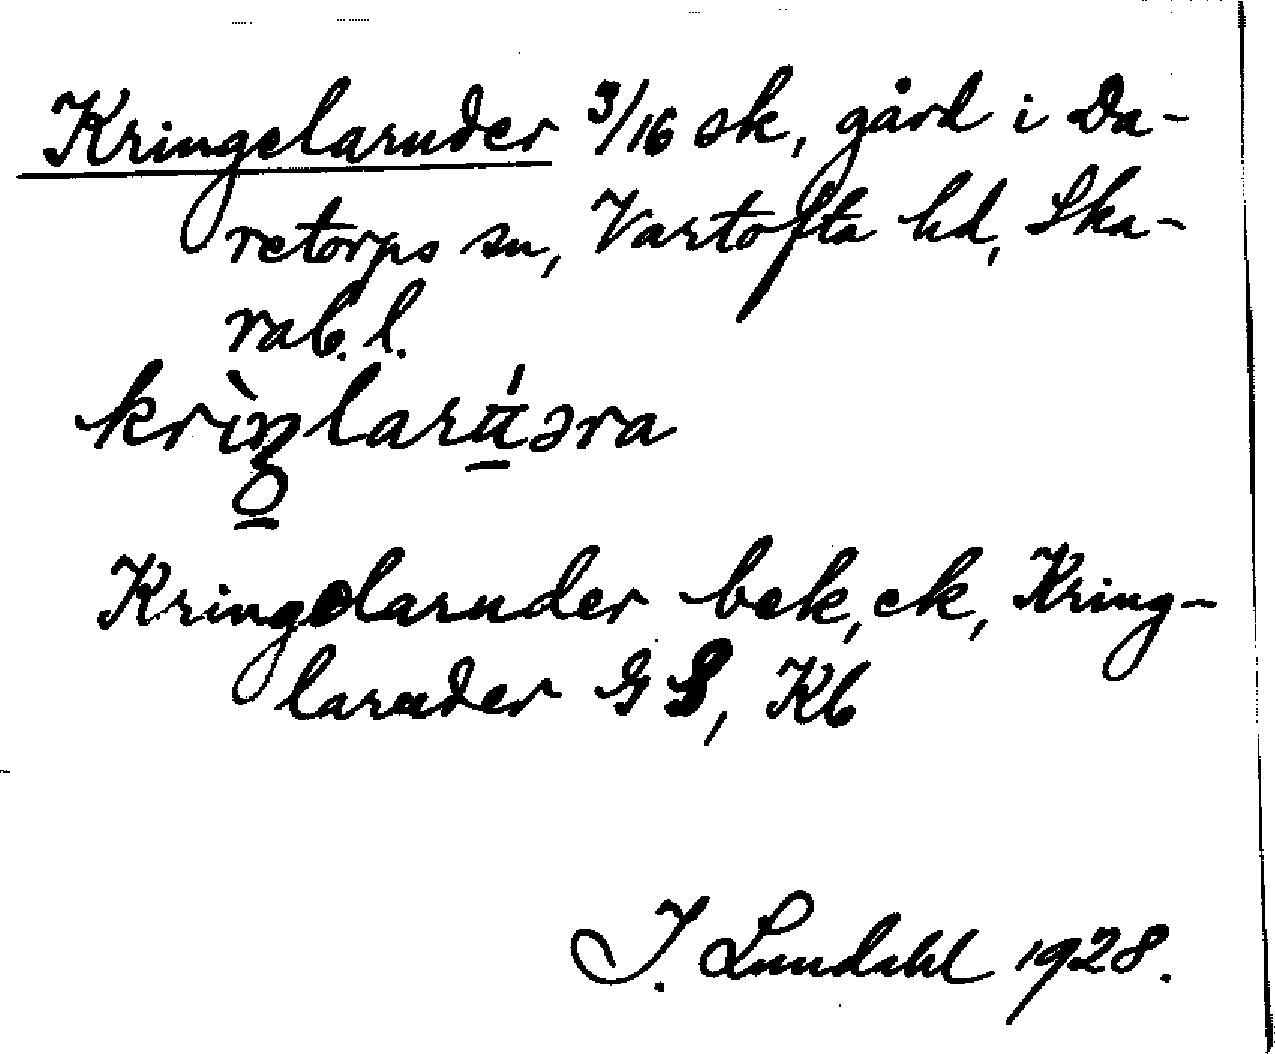 Kringelaruder 3/16 sk, gård i Da-
retorps sn, Vartofta hd, Ska-
rab. l.
krìŋlarúəra
Kringelaruder bek, ek, Kring-
laruder GS, Kb
I. Lundahl 1928.